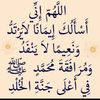 اللَّهُمَّ إِنِّي
أَسْأَلُكَ إِيمَانًا لَا يَرْتَدُّ
وَنَعِيمًا لَا يَنْفَدُ
وَمُرَافَقَةَ مُحَمَّدٍ ﷺ
فِي أَعْلَى جَنَّةِ الْخُلْدِ